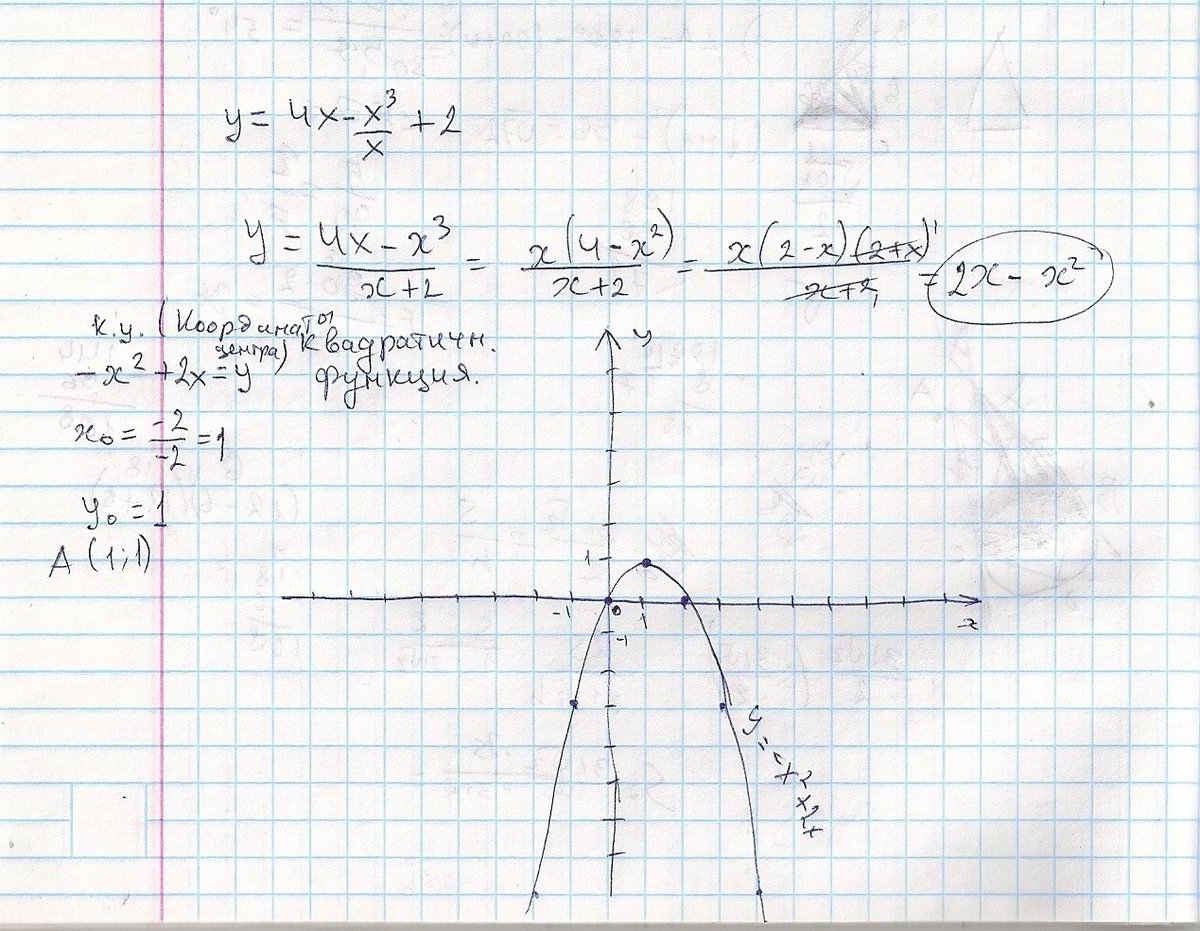 y = 4x - x³/x + 2
y = (4x - x³)/(x+2) = x(4 - x²)/(x+2) = x(2-x)(2+x)/(x+2) = 2x - x²
к.ц. (Координаты центра) квадратичн. функция.
-x² + 2x = y
x₀ = -2/-2 = 1
y₀ = 1
A (1;1)
y
1
-1 0 1 x
-1
y = -x² + 2x